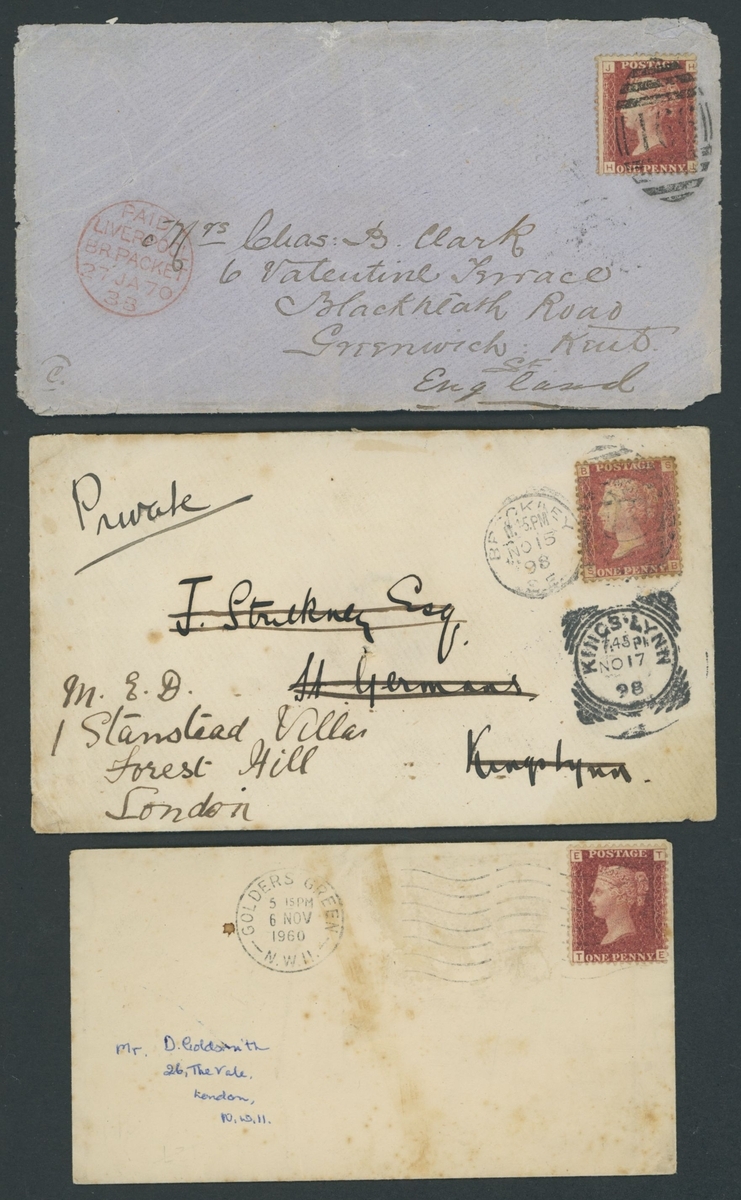 J H
POSTAGE
H J
ONE PENNY
PAID
LIVERPOOL
BR.PACKET
27 JA 70
3S
Mrs Chas. B. Clark
6 Valentine Terrace
Blackheath Road
Greenwich Kent
England
Private
BROCKLEY
PM
NO 15
98
S.E.
B B
POSTAGE
B B
ONE PENNY
J. Stuckney Esq
St Germans
Kingslynn.
KINGS LYNN
7.45 PM
NO 17
98
M. E. D.
1 Stanstead Villas
Forest Hill
London
GOLDERS GREEN
5 15PM
6 NOV
1960
N.W.11.
E T
POSTAGE
T E
ONE PENNY
Mr. D. Goldsmith
26, The Vale.
London,
N.W.11.